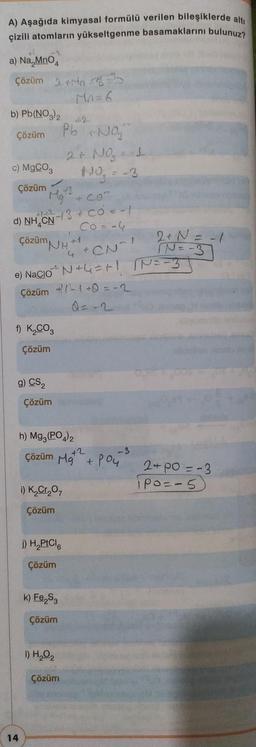 A) Aşağıda kimyasal formülü verilen bileşiklerde altı
çizili atomların yükseltgenme basamaklarını bulunuz?
a) Na₂MnO₄
Çözüm
Mn=6
b) Pb(NO₃)₂
Çözüm Pb⁺² + NO₃⁻
2 + NO₃ = -1
c) MgCO₃
NO₃ = -3
Çözüm
Mg⁺³ + CO⁻
+3 + CO = -1
CO = -4
d) NH₄CN
Çözüm NH₄⁺¹ + CN⁻¹
2 + N = -1
N = -3
N+4=+1 N=-3
e) NaClO
Çözüm +1-1+O=-2
O=-2
f) K₂CO₃
Çözüm
g) CS₂
Çözüm
h) Mg₃(PO₄)₂
Çözüm Mg⁺² + PO₄⁻³
2+PO=-3
PO=-5
i) K₂Cr₂O₇
Çözüm
j) H₂PtCl₆
Çözüm
k) Fe₂S₃
Çözüm
l) H₂O₂
Çözüm
14